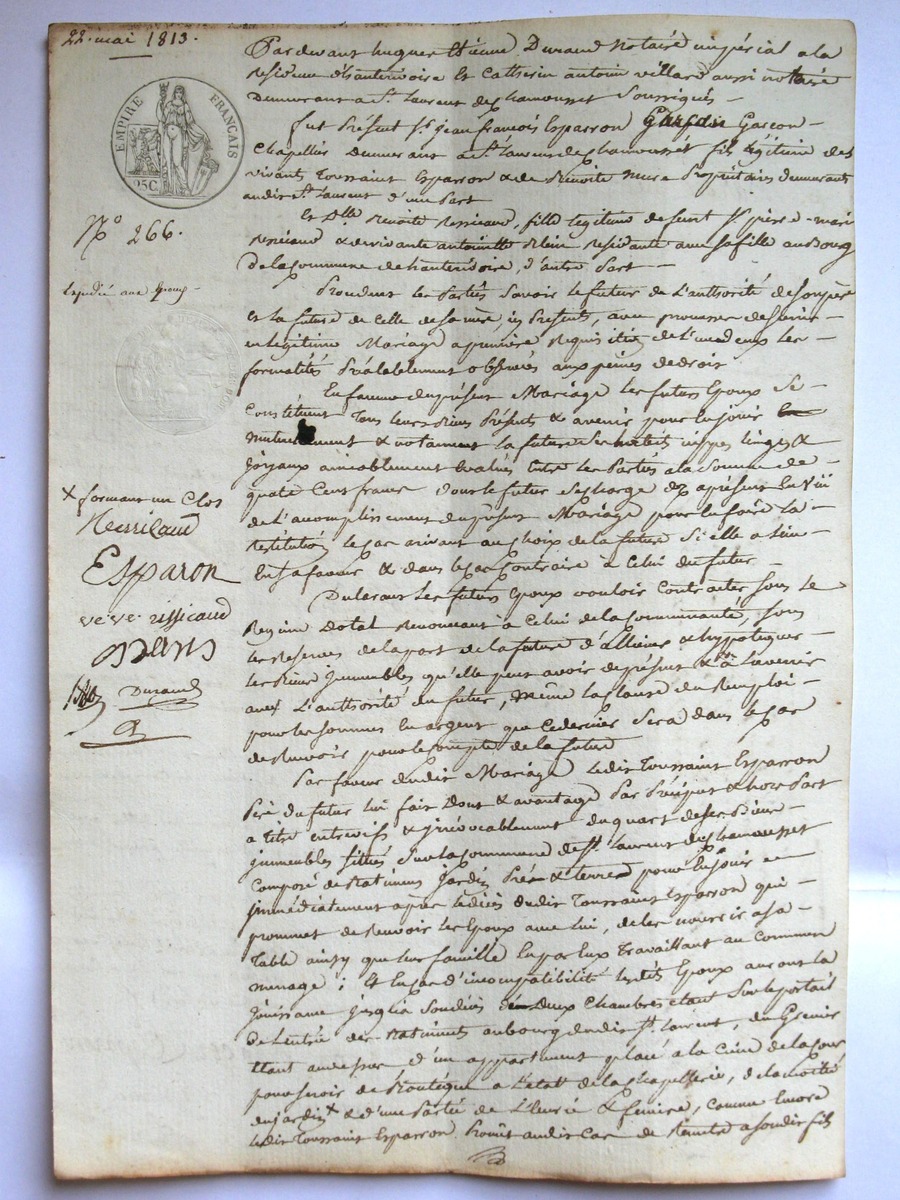 22 mai 1813.
EMPIRE FRANÇAIS
25C.
N.º 266.
Expédié aux Epoux
Pardevant hugues Etienne Durand Notaire impérial a la
residence d'hauterivoire et Catherin antoine villard aussi notaire
Demeurant a St. Laurent de Chamousset Soussignés
fut Présent Sr. jean françois Esparron Garcon
Chapellier Demeurant a St. Laurent de chamousset fils légitime des
vivants Toussaint Esparron & de Benoite mure Propriétaires demeurants
audit St. Laurent d'une Part
Et Dlle Benoite Ressicaud, fille legitime de feu Sr. pierre marie
Ressicaud & de vivante antoinette Blein residante avec sa fille au Bourg
De la Commune de hauterivoire, d'autre Part
Procedant les Partiés Savoir le futur de L'authorité de son père
et la future de Celle de sa mère, ici Presents, avec promesse de s'unir
en légitime Mariage a première Requisition de L'un d'eux les
formalités Préalablement observées aux peines de droit
En faveur du présent Mariage les futurs Epoux Se
Constituent Tous leurs Biens Présents & avenir pour en jouir
mutuellement & notamment la future Ses nippes linges &
Joyaux aimablement Evalués Entre les Partiés a la Somme de
quatre Cent francs dont le futur Se charge dés aprésent En vüe
de L'accomplissement du présent Mariage pour en faire la
Restitution le Cas arivant au choix de la future Si elle a lieu
En sa faveur & dans le Cas Contraire a Celui du futur
Déclarant les futurs Epoux vouloir Contracter Sous le
Regime Dotal Renonceant à Celui de la Communauté, Sous
les Reserves de la part de la future d'alliéner & hypotéquer
les Biens Immeubles qu'elle peut avoir de présent & à l'avenir
avec L'authorité du futur, même la clause du Remploi
pour les Sommes En argent que Ce dernier Sera dans le Cas
de Recevoir pour le Compte de la future
Par faveur dudit Mariage Ledit Toussaint Esparron
Pere du futur lui fait Dont & avantage Par Préciput & hors Part
a titre entrevifs & irrévocablement du quart de ses Biens
immeubles Sittués Sur la Commune de St. Laurent de Chamousset
Composé de Batimens Jardin Prés & terres pour En jouir
immédiatement après le décès dudit Toussaint Esparron qui
prommet de Recevoir les Epoux avec lui, de les nourrir a sa
Table ainsy que leur famille En par Eux Travaillant au Commun
menage; Et En Cas d'incompatibilité lesdits Epoux auront la
Jouissance jusqu'a Son décès de Deux Chambres étant Sur le portail
De L'entrée des Batimens au bourg dudit St. Laurent, du Grenier
Etant au dessus d'un appartement placé a la Cime de la Cour
pour servir de Boutique a L'état de la Chapellerie, de la moitié
du jardin x & d'une Partie de L'Ecurie & feniere, comme Encore
ledit Toussaint Esparron Promet audit Cas de Remettre a son dit fils
x formant un Clos
Ressicaud
Esparon
veve rissicaud
Durand